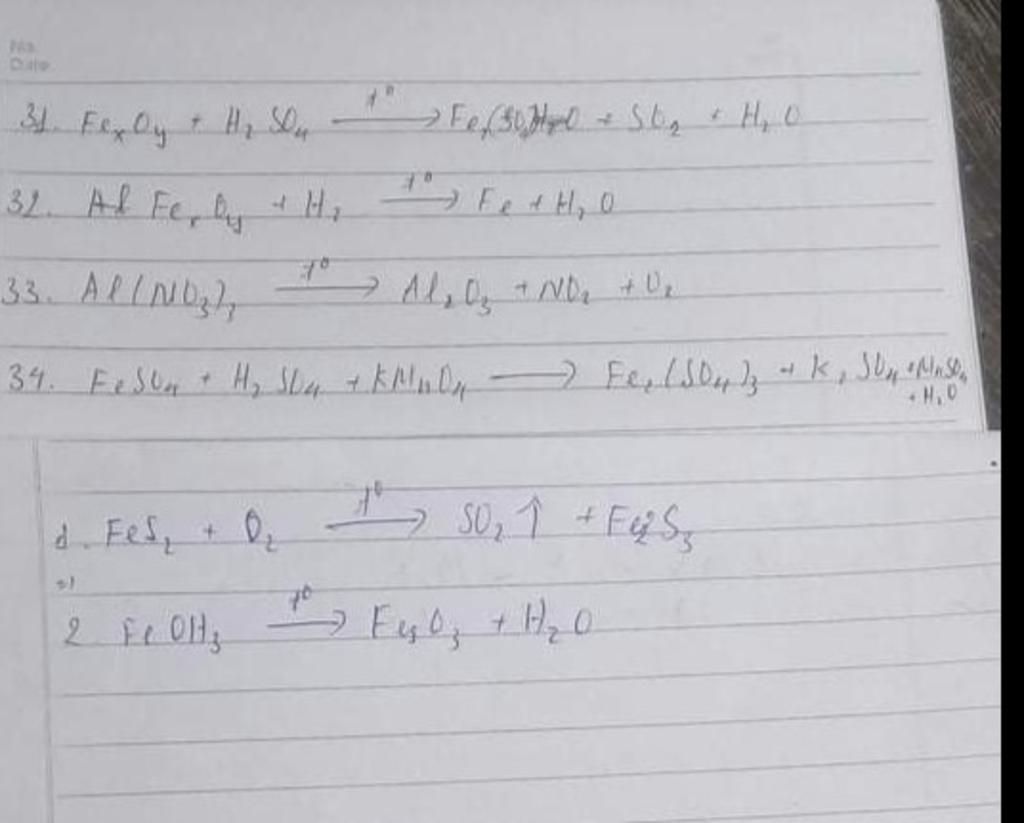 No.
Date
31. FeₓOᵧ + H₂SO₄ —t°→ Fe₂(SO₄) + SO₂ + H₂O
32. FeₓOᵧ + H₂ —t°→ Fe + H₂O
33. Al(NO₃)₃ —t°→ Al₂O₃ + NO₂ + O₂
34. FeSO₄ + H₂SO₄ + KMnO₄ → Fe₂(SO₄)₃ + K₂SO₄ + MnSO₄
+ H₂O
d. FeS₂ + O₂ —t°→ SO₂↑ + Fe₂S₃
2 FeOH₃ —t°→ O₃ + H₂O